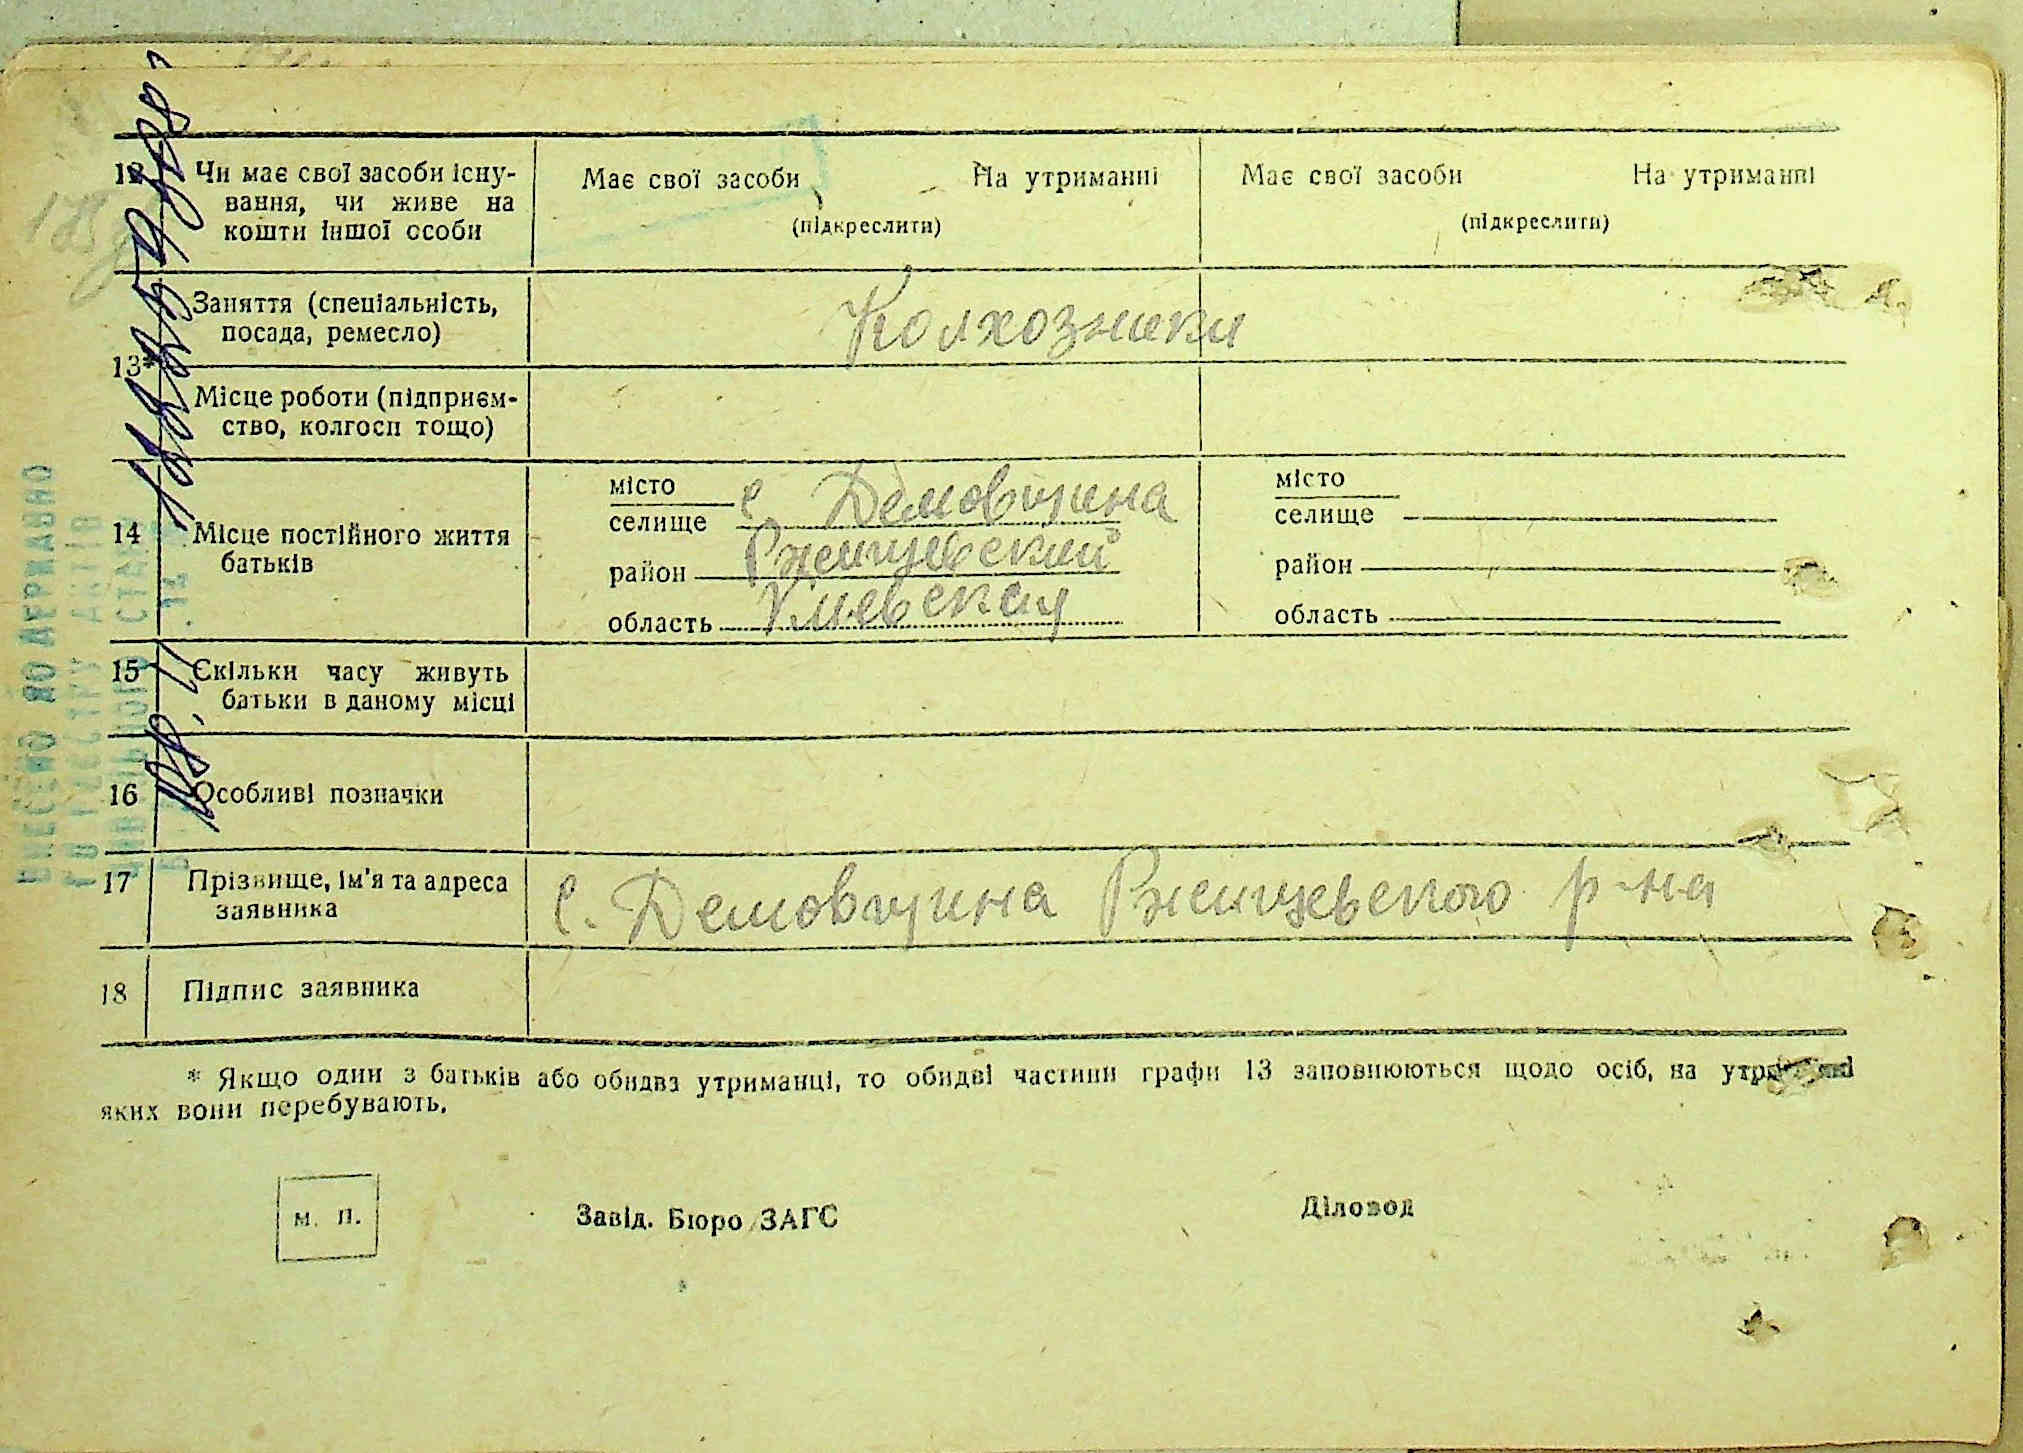 12 Чи має свої засоби існу-
вання, чи живе на
кошти іншої особи
Має свої засоби На утриманні
(підкреслити)
Має свої засоби На утриманні
(підкреслити)
13*
Заняття (спеціальність,
посада, ремесло)
Колхозники
Місце роботи (підприєм-
ство, колгосп тощо)
14 Місце постійного життя
батьків
місто
селище с. Демовщина
район Ржищевский
область Киевская
місто
селище
район
область
15 Скільки часу живуть
батьки в даному місці
16 Особливі позначки
17 Прізвище, ім'я та адреса
заявника
с. Демовщина Ржищевского р-на
18 Підпис заявника
* Якщо один з батьків або обидва утриманці, то обидві частини графи 13 заповнюються щодо осіб, на утриманні
яких вони перебувають.
м. п.
Завід. Бюро ЗАГС
Діловод
ВНЕСЕНО ДО ДЕРЖАВНО